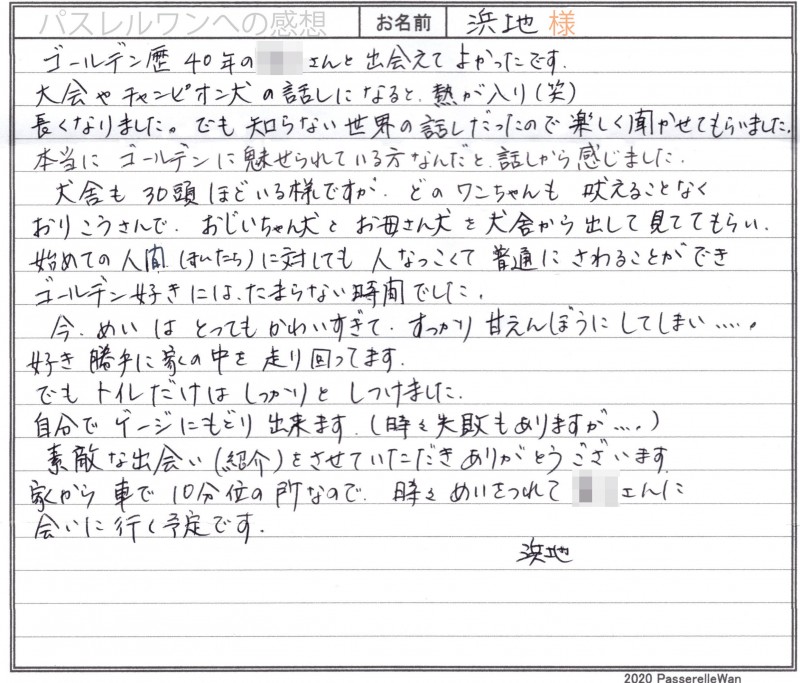 パスレルワンへの感想 お名前 浜地 様
ゴールデン歴 40年の さんと 出会えて よかったです.
大会や チャンピオン犬 の 話しになると. 熱が入り (笑)
長くなりました。でも 知らない世界の 話しだったので 楽しく聞かせてもらいました.
本当に ゴールデンに 魅せられている方なんだと. 話しから感じました.
犬舎も 30頭 ほどいる様ですが. どの ワンちゃんも 吠えることなく
おりこうさんで. おじいちゃん犬 と お母さん犬 を 犬舎から 出して 見ててもらい.
始めての 人間 (まいたち) に対しても 人なつこくて 普通に さわることができ
ゴールデン好きには. たまらない 時間でした.
今. めい は とっても かわいすぎて. すっかり 甘えんぼうにしてしまい …..。
好き 勝手に 家の中を 走り回ってます.
でも トイレだけは しっかりと しつけました.
自分で ゲージにもどり 出来ます. (時々失敗もありますが….)
素敵な出会い (紹介) をさせていただき ありがとうございます
家から 車で 10分位の所なので. 時々 めいをつれて さんに
会いに行く予定です.
浜地
2020 PasserelleWan